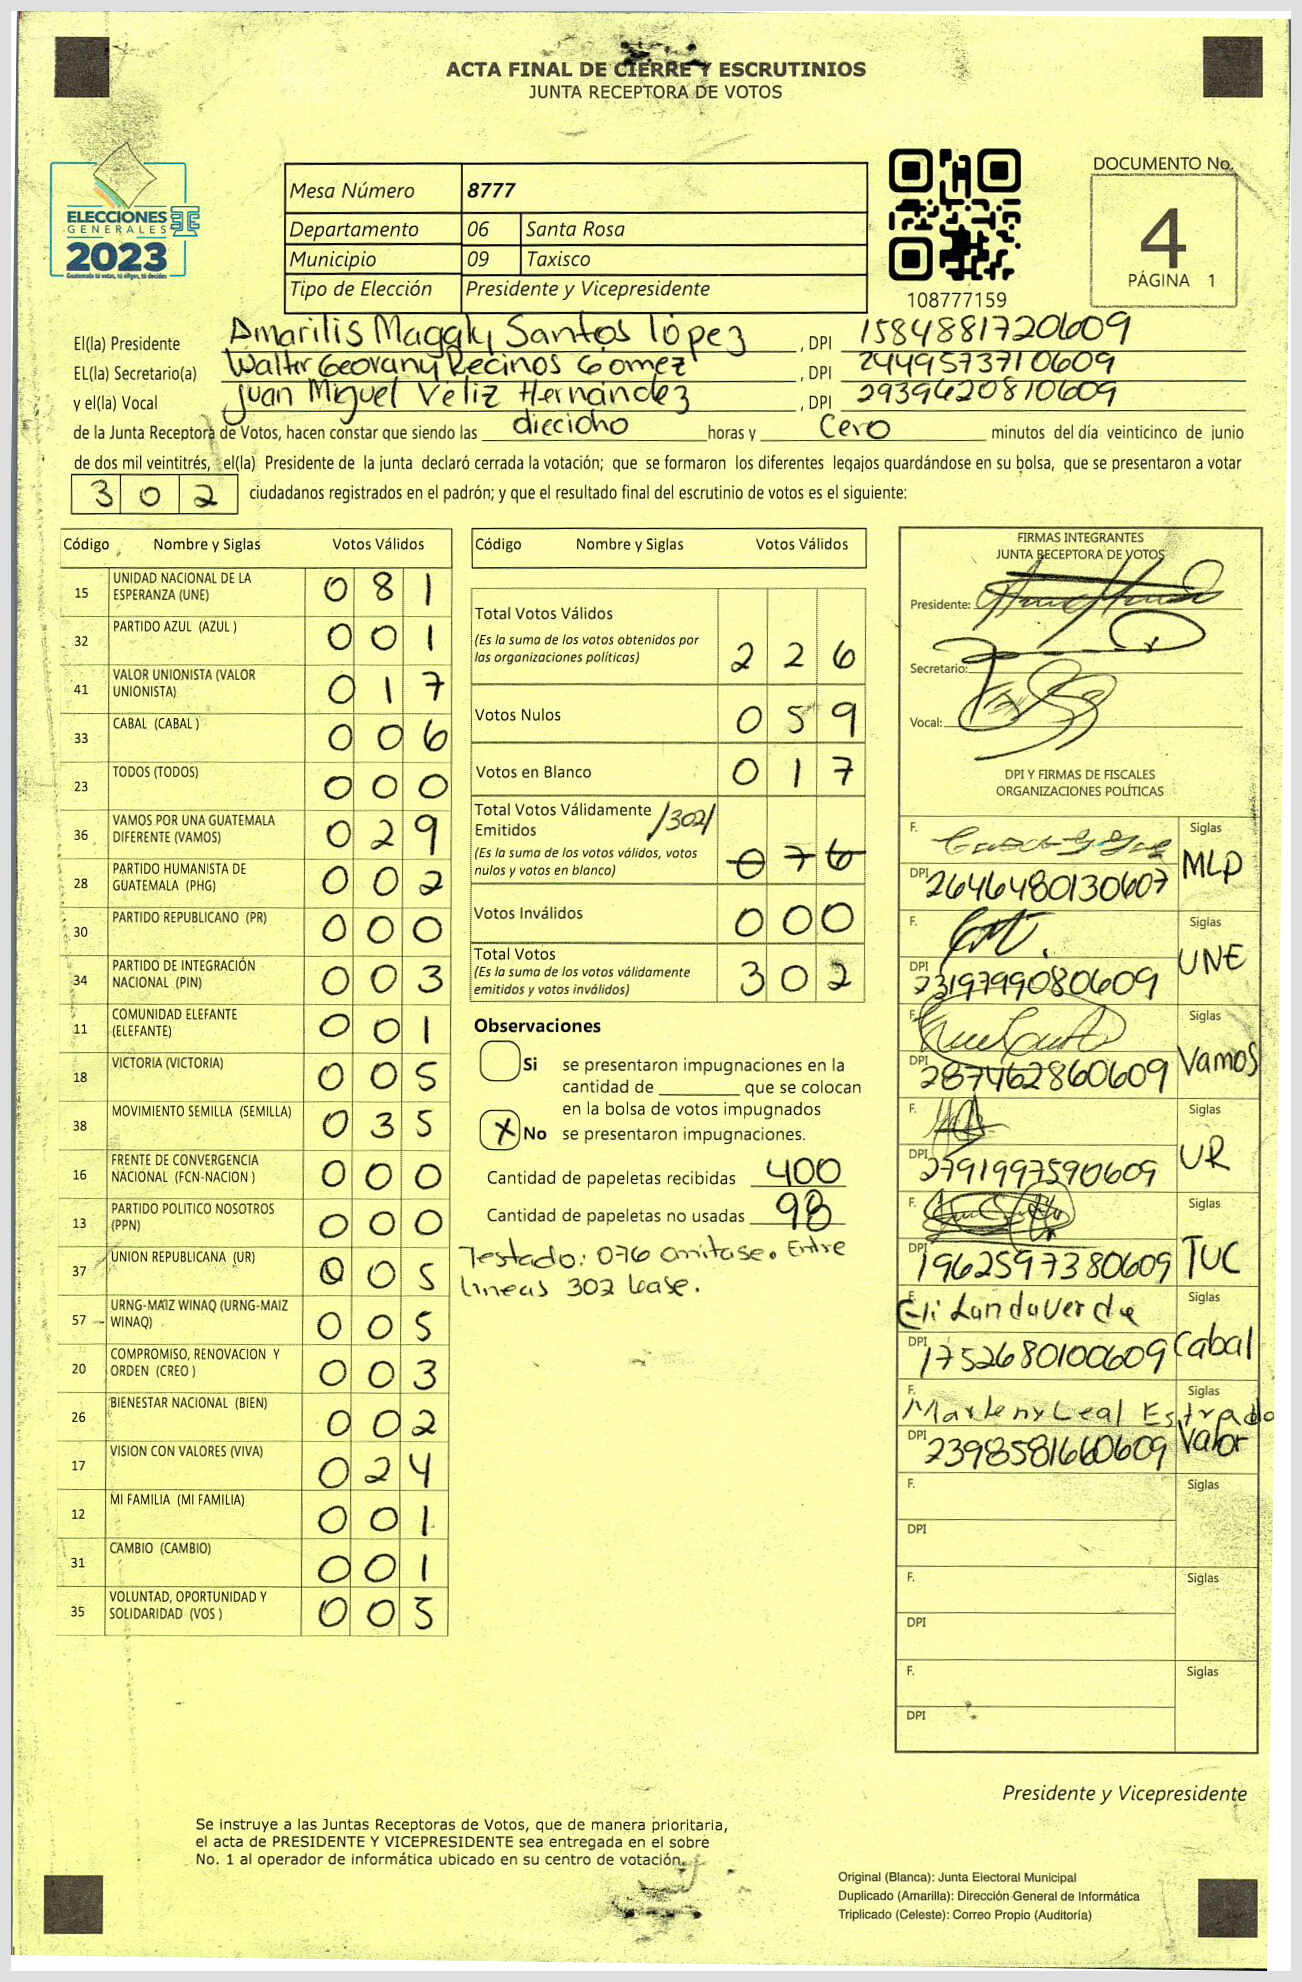 ACTA FINAL DE CIERRE Y ESCRUTINIOS
JUNTA RECEPTORA DE VOTOS
ELECCIONES
GENERALES
2023
Guatemala tú votas, tú eliges, tú decides
Mesa Número 8777
Departamento 06 Santa Rosa
Municipio 09 Taxisco
Tipo de Elección Presidente y Vicepresidente
108777159
DOCUMENTO No.
4
PÁGINA 1
El(la) Presidente Amarilis Magaly Santos López, DPI 1584881720609
EL(la) Secretario(a) Walter Geovany Recinos Gómez, DPI 2449573710609
y el(la) Vocal Juan Miguel Véliz Hernández, DPI 2939620810609
de la Junta Receptora de Votos, hacen constar que siendo las dieciocho horas y Cero minutos del día veinticinco de junio
de dos mil veintitrés, el(la) Presidente de la junta declaró cerrada la votación; que se formaron los diferentes legajos guardándose en su bolsa, que se presentaron a votar
302 ciudadanos registrados en el padrón; y que el resultado final del escrutinio de votos es el siguiente:
Código Nombre y Siglas Votos Válidos
15 UNIDAD NACIONAL DE LA ESPERANZA (UNE) 081
32 PARTIDO AZUL (AZUL ) 001
41 VALOR UNIONISTA (VALOR UNIONISTA) 017
33 CABAL (CABAL ) 006
23 TODOS (TODOS) 000
36 VAMOS POR UNA GUATEMALA DIFERENTE (VAMOS) 029
28 PARTIDO HUMANISTA DE GUATEMALA (PHG) 002
30 PARTIDO REPUBLICANO (PR) 000
34 PARTIDO DE INTEGRACIÓN NACIONAL (PIN) 003
11 COMUNIDAD ELEFANTE (ELEFANTE) 001
18 VICTORIA (VICTORIA) 005
38 MOVIMIENTO SEMILLA (SEMILLA) 035
16 FRENTE DE CONVERGENCIA NACIONAL (FCN-NACION ) 000
13 PARTIDO POLITICO NOSOTROS (PPN) 000
37 UNION REPUBLICANA (UR) 005
57 URNG-MAIZ WINAQ (URNG-MAIZ WINAQ) 005
20 COMPROMISO, RENOVACION Y ORDEN (CREO ) 003
26 BIENESTAR NACIONAL (BIEN) 002
17 VISION CON VALORES (VIVA) 024
12 MI FAMILIA (MI FAMILIA) 001
31 CAMBIO (CAMBIO) 001
35 VOLUNTAD, OPORTUNIDAD Y SOLIDARIDAD (VOS ) 005
Código Nombre y Siglas Votos Válidos
Total Votos Válidos
(Es la suma de los votos obtenidos por
las organizaciones políticas) 226
Votos Nulos 059
Votos en Blanco 017
Total Votos Válidamente
Emitidos /302/
(Es la suma de los votos válidos, votos
nulos y votos en blanco) 076
Votos Inválidos 000
Total Votos
(Es la suma de los votos válidamente
emitidos y votos inválidos) 302
Observaciones
Si se presentaron impugnaciones en la
cantidad de ________ que se colocan
en la bolsa de votos impugnados
X No se presentaron impugnaciones.
Cantidad de papeletas recibidas 400
Cantidad de papeletas no usadas 98
Testado: 076 omitase. Entre
lineas 302 lease.
FIRMAS INTEGRANTES
JUNTA RECEPTORA DE VOTOS
Presidente:
Secretario:
Vocal:
DPI Y FIRMAS DE FISCALES
ORGANIZACIONES POLÍTICAS
F. Siglas
DPI 2646480130607 MLP
F. Siglas
DPI 2319799080609 UNE
F. Siglas
DPI 287462860609 Vamos
F. Siglas
DPI 2791997590609 UR
F. Siglas
DPI 1962597380609 TUC
F. Eli Landaverde Siglas
DPI 1752680100609 Cabal
F. Marleny Leal Estrada Siglas
DPI 2398581660609 Valor
F. Siglas
DPI
F. Siglas
DPI
F. Siglas
DPI
Presidente y Vicepresidente
Se instruye a las Juntas Receptoras de Votos, que de manera prioritaria,
el acta de PRESIDENTE Y VICEPRESIDENTE sea entregada en el sobre
No. 1 al operador de informática ubicado en su centro de votación.
Original (Blanca): Junta Electoral Municipal
Duplicado (Amarilla): Dirección General de Informática
Triplicado (Celeste): Correo Propio (Auditoría)